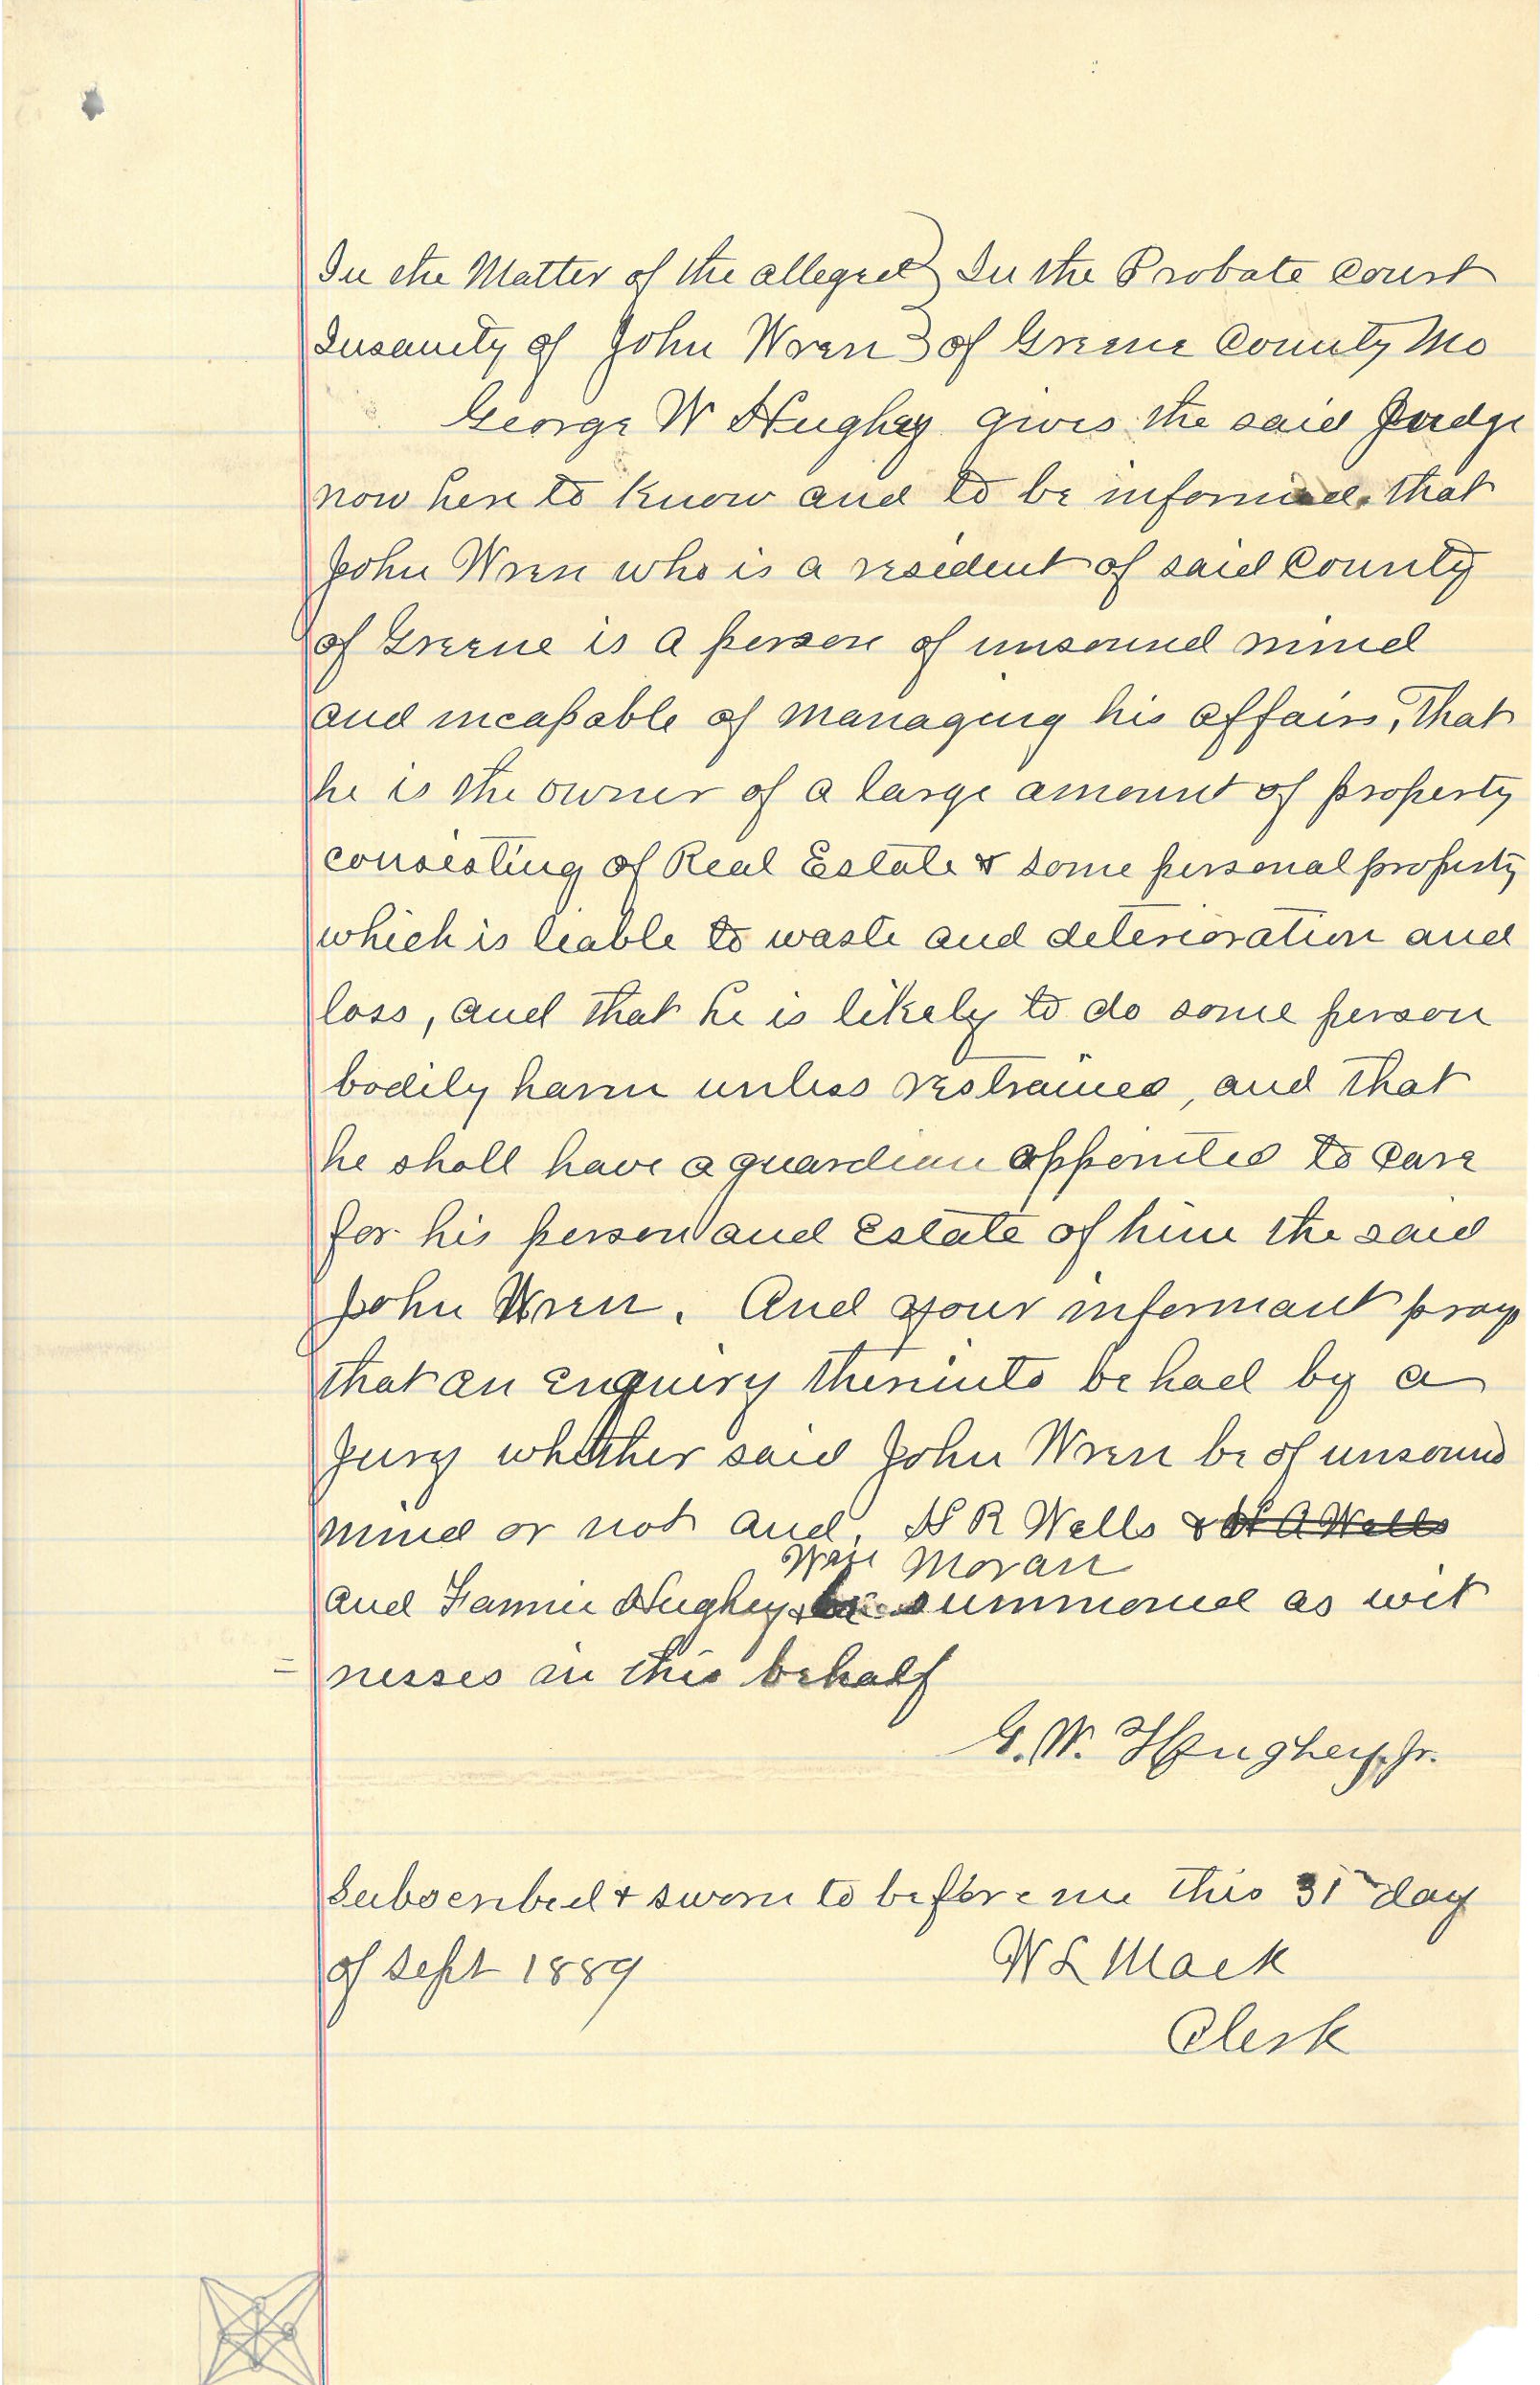 In the Matter of the alleged } In the Probate Court
Insanity of John Wren } of Greene County Mo
George W Hughey gives the said Judge
now here to know and to be informed, that
John Wren who is a resident of said County
of Greene is a person of unsound mind
and incapable of managing his affairs, That
he is the owner of a large amount of property
consisting of Real Estate & some personal property
which is liable to waste and deterioration and
loss, and that he is likely to do some person
bodily harm unless restrained, and that
he shall have a guardian appointed to care
for his person and Estate of him the said
John Wren. And your informant prays
that an enquiry thereinto be had by a
Jury whether said John Wren be of unsound
mind or not and, H R Wells & H A Wells
Moran
and Fannie Hughey & be summoned as wit
= nesses in this behalf
G. W. Hughey, Jr.
Subscribed & sworn to before me this 31 day
of Sept 1889 W L Mack
Clerk